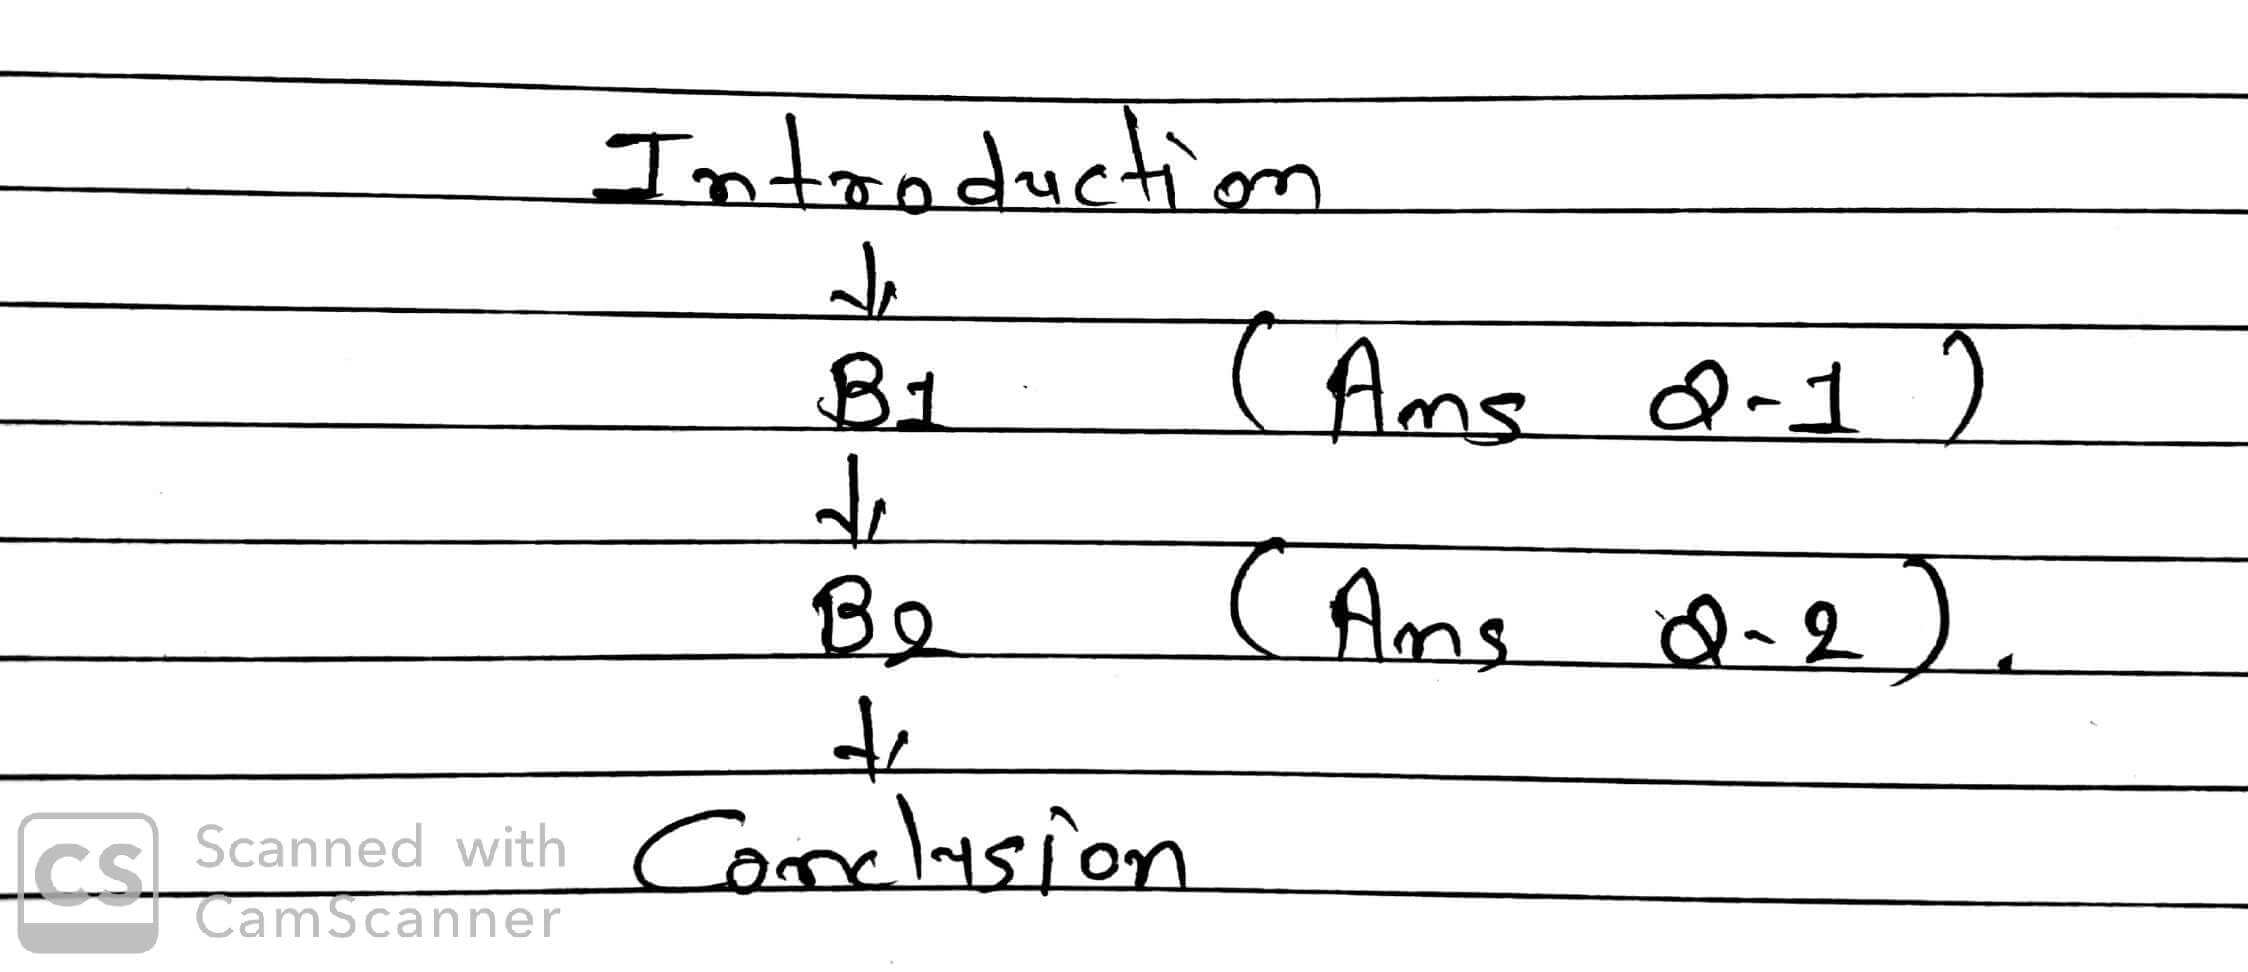 Introduction
↓
B1 (Ans Q-1)
↓
B2 (Ans Q-2).
↓
Conclusion
CS Scanned with
CamScanner